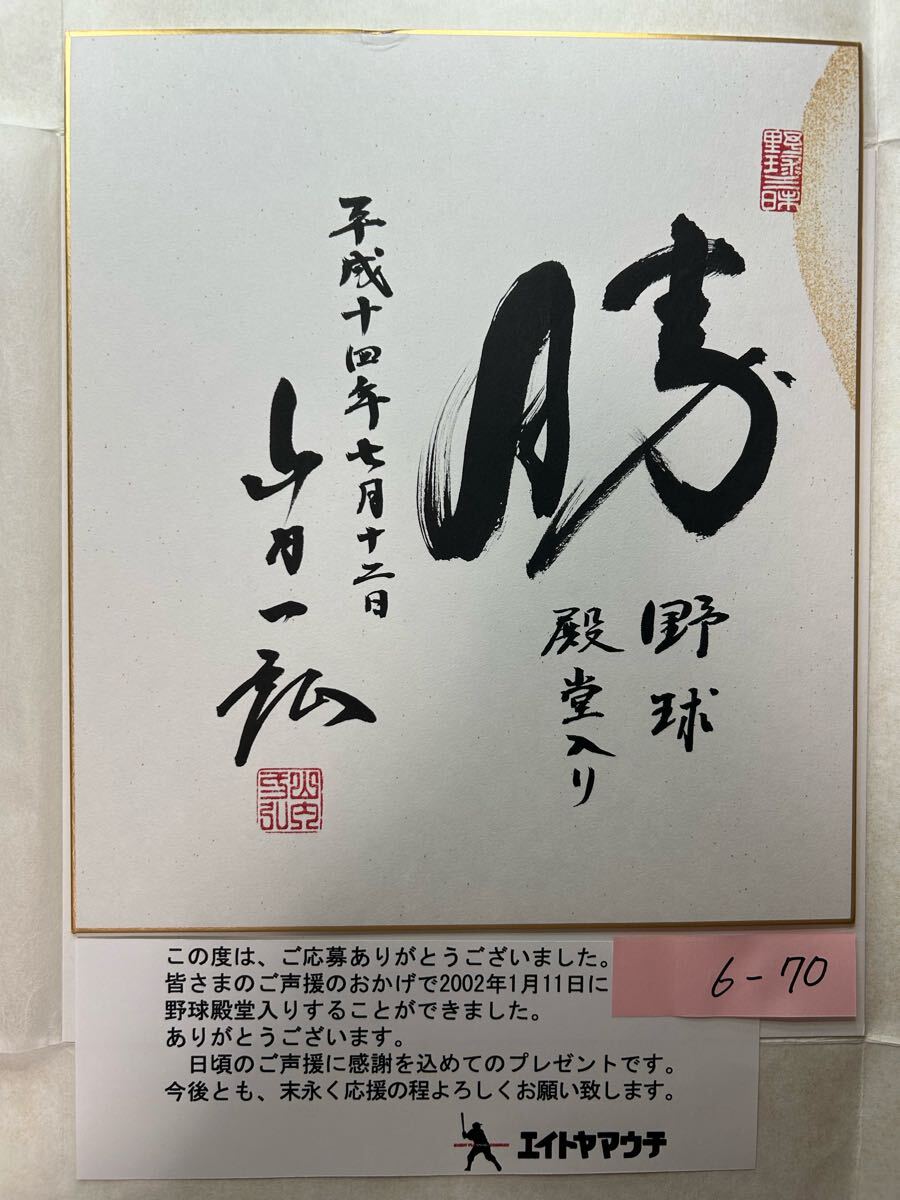 野球三昧
勝
野球
殿堂入り
平成十四年七月十二日
山内一弘
この度は、ご応募ありがとうございました。
皆さまのご声援のおかげで2002年1月11日に
野球殿堂入りすることができました。
ありがとうございます。
日頃のご声援に感謝を込めてのプレゼントです。
今後とも、末永く応援の程よろしくお願い致します。
エイトヤマウチ
6-70